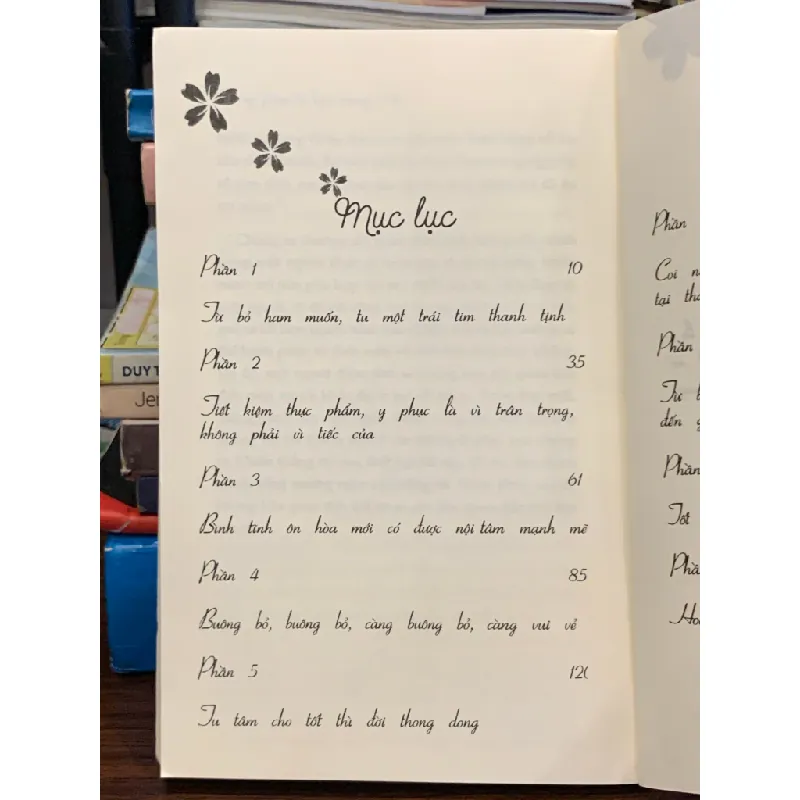 Mục lục
Phần 1 10
Từ bỏ ham muốn, tu một trái tim thanh tịnh
Phần 2 35
Tiết kiệm thực phẩm, y phục là vì trân trọng,
không phải vì tiếc của
Phần 3 61
Bình tĩnh ôn hòa mới có được nội tâm mạnh mẽ
Phần 4 85
Buông bỏ, buông bỏ, càng buông bỏ, càng vui vẻ
Phần 5 120
Tu tâm cho tốt thì đời thong dong
Phần
Coi
tại
Phần
Từ
đến
Phần
Tốt
DUY